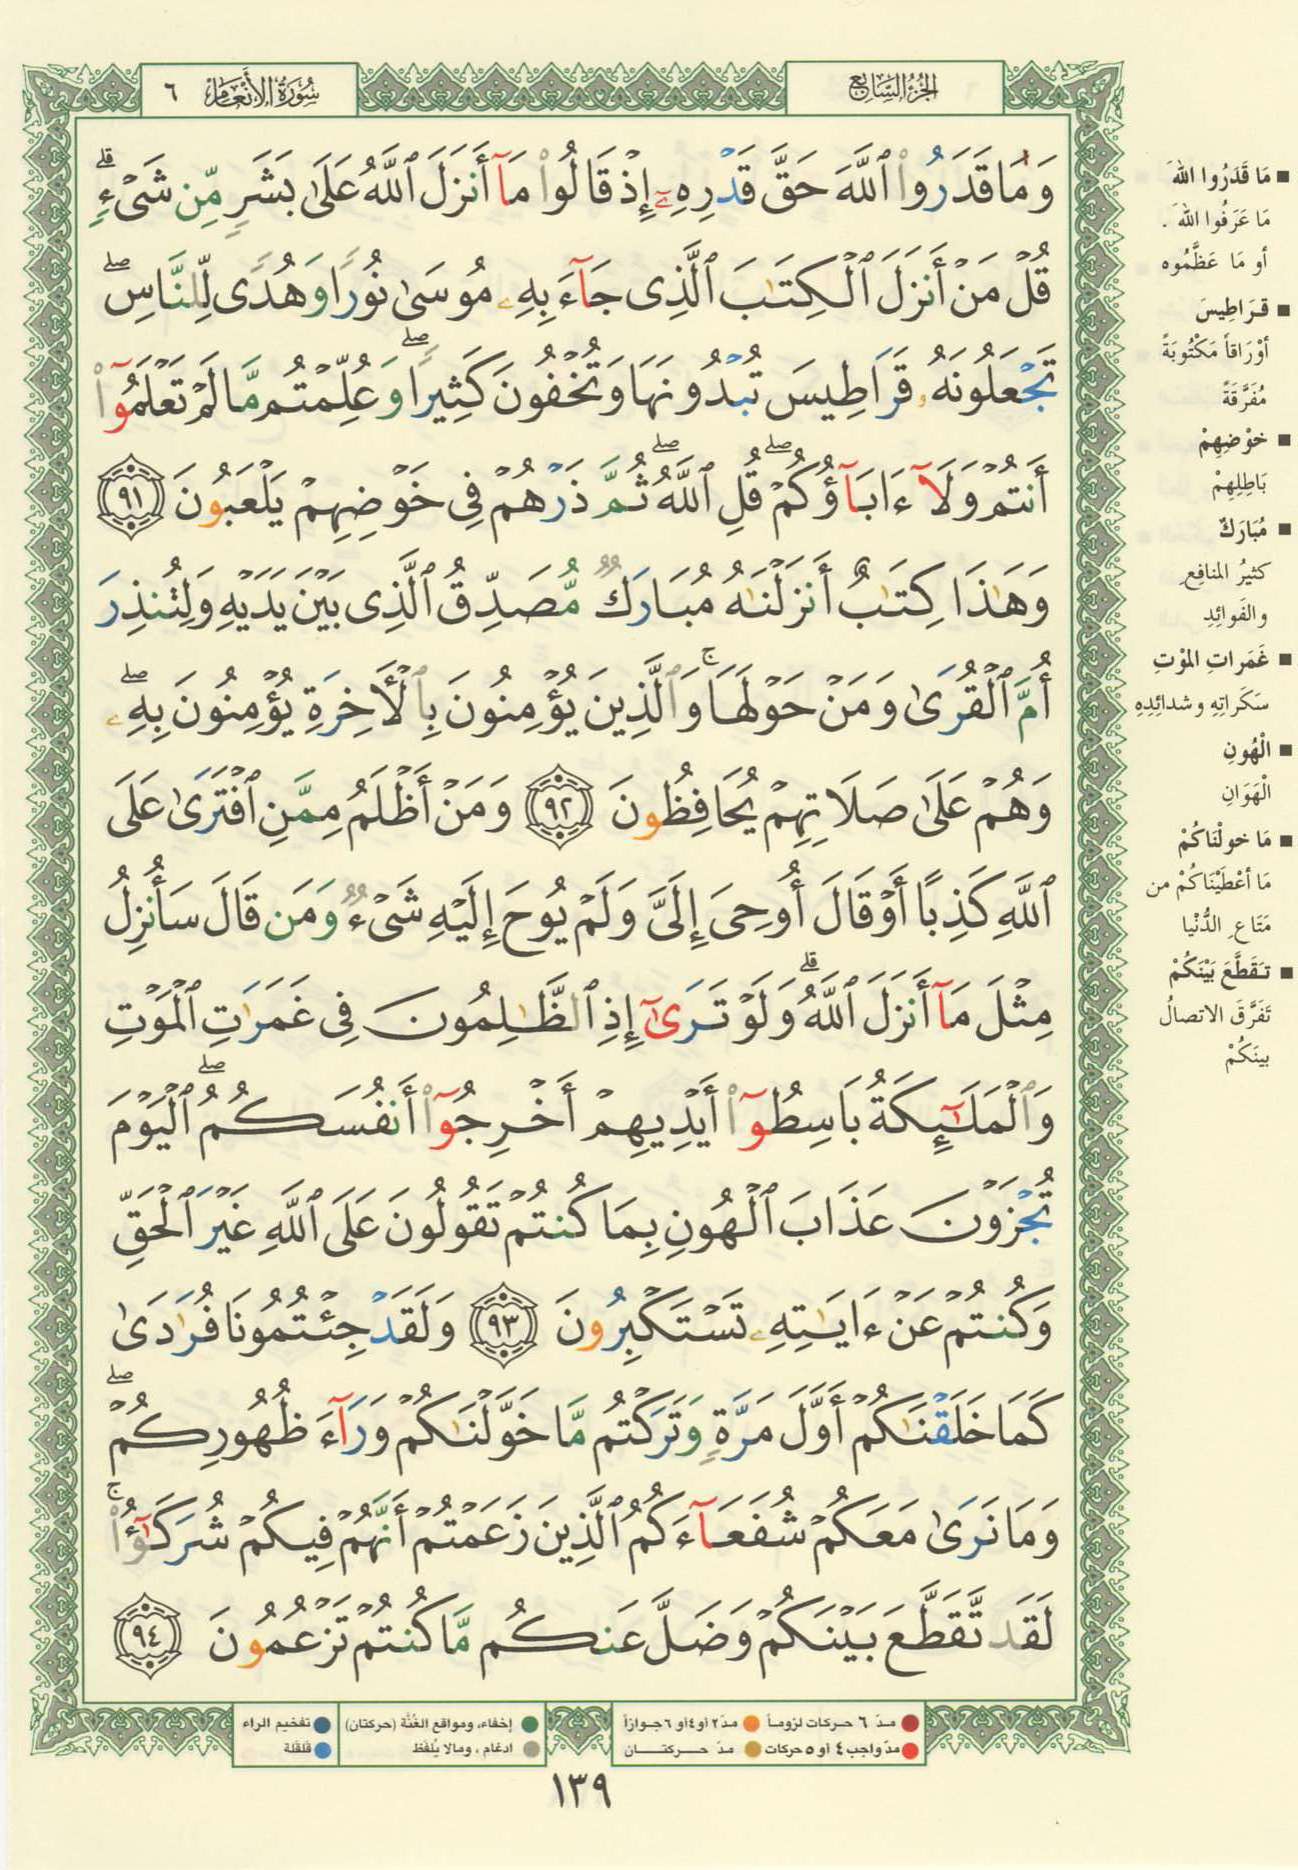 الجزء السابع
سورة الأنعام ٦
وَمَا قَدَرُوا۟ ٱللَّهَ حَقَّ قَدْرِهِۦٓ إِذْ قَالُوا۟ مَآ أَنزَلَ ٱللَّهُ عَلَىٰ بَشَرٍ مِّن شَىْءٍ ۗ
قُلْ مَنْ أَنزَلَ ٱلْكِتَـٰبَ ٱلَّذِى جَآءَ بِهِۦ مُوسَىٰ نُورًا وَهُدًى لِّلنَّاسِ ۖ
تَجْعَلُونَهُۥ قَرَاطِيسَ تُبْدُونَهَا وَتُخْفُونَ كَثِيرًا ۖ وَعُلِّمْتُم مَّا لَمْ تَعْلَمُوٓا۟
أَنتُمْ وَلَآ ءَابَآؤُكُمْ ۖ قُلِ ٱللَّهُ ۖ ثُمَّ ذَرْهُمْ فِى خَوْضِهِمْ يَلْعَبُونَ ٩١
وَهَـٰذَا كِتَـٰبٌ أَنزَلْنَـٰهُ مُبَارَكٌ مُّصَدِّقُ ٱلَّذِى بَيْنَ يَدَيْهِ وَلِتُنذِرَ
أُمَّ ٱلْقُرَىٰ وَمَنْ حَوْلَهَا ۚ وَٱلَّذِينَ يُؤْمِنُونَ بِٱلْـَٔاخِرَةِ يُؤْمِنُونَ بِهِۦ ۖ
وَهُمْ عَلَىٰ صَلَاتِهِمْ يُحَافِظُونَ ٩٢ وَمَنْ أَظْلَمُ مِمَّنِ ٱفْتَرَىٰ عَلَى
ٱللَّهِ كَذِبًا أَوْ قَالَ أُوحِىَ إِلَىَّ وَلَمْ يُوحَ إِلَيْهِ شَىْءٌ وَمَن قَالَ سَأُنزِلُ
مِثْلَ مَآ أَنزَلَ ٱللَّهُ ۗ وَلَوْ تَرَىٰٓ إِذِ ٱلظَّـٰلِمُونَ فِى غَمَرَٰتِ ٱلْمَوْتِ
وَٱلْمَلَـٰٓئِكَةُ بَاسِطُوٓا۟ أَيْدِيهِمْ أَخْرِجُوٓا۟ أَنفُسَكُمُ ۖ ٱلْيَوْمَ
تُجْزَوْنَ عَذَابَ ٱلْهُونِ بِمَا كُنتُمْ تَقُولُونَ عَلَى ٱللَّهِ غَيْرَ ٱلْحَقِّ
وَكُنتُمْ عَنْ ءَايَـٰتِهِۦ تَسْتَكْبِرُونَ ٩٣ وَلَقَدْ جِئْتُمُونَا فُرَٰدَىٰ
كَمَا خَلَقْنَـٰكُمْ أَوَّلَ مَرَّةٍ وَتَرَكْتُم مَّا خَوَّلْنَـٰكُمْ وَرَآءَ ظُهُورِكُمْ ۖ
وَمَا نَرَىٰ مَعَكُمْ شُفَعَآءَكُمُ ٱلَّذِينَ زَعَمْتُمْ أَنَّهُمْ فِيكُمْ شُرَكَـٰٓؤُا۟ ۚ
لَقَد تَّقَطَّعَ بَيْنَكُمْ وَضَلَّ عَنكُم مَّا كُنتُمْ تَزْعُمُونَ ٩٤
مَا قَدَرُوا اللهَ
مَا عَرَفُوا اللهَ.
أو مَا عَظَّمُوه
قَرَاطِيسَ
أوْرَاقاً مَكْتُوبَةً
مُفَرَّقَةً
خَوْضِهِمْ
بَاطِلِهِمْ
مُبَارَكٌ
كثيرُ المنافِع
والفَوائِدِ
غَمَراتِ الموْتِ
سَكَرَاتِهِ وشدائِدِهِ
الْهُونِ
الْهَوَانِ
مَا خولْنَاكُمْ
مَا أعْطَيْنَاكُمْ من
مَتَاعِ الدُّنْيا
تَقَطَّعَ بَيْنَكُمْ
تَفَرَّقَ الاتصالُ
بينَكُمْ
مدّ ٦ حركات لزوماً
مدّ ٢ أو ٤ أو ٦ جوازاً
مدّ واجب ٤ أو ٥ حركات
مدّ حركتان
إخفاء، ومواقع الغُنَّة (حركتان)
ادغام، ومالا يُلفَظ
تفخيم الراء
قلقلة
١٣٩